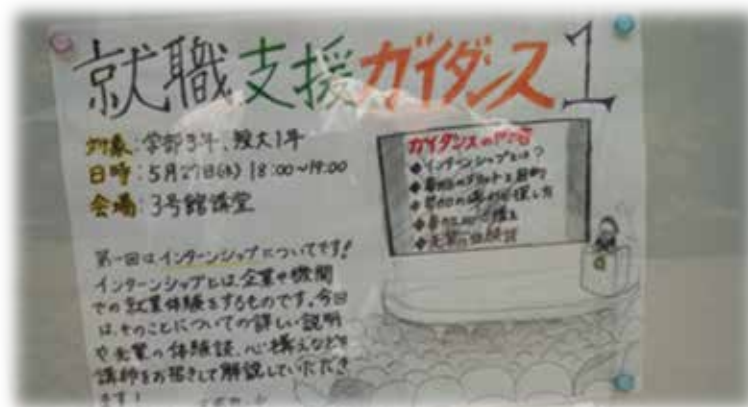 就職支援ガイダンス1
対象:学部3年、短大1年
日時:5月27日(水) 18:00~19:00
会場:3号館講堂
ガイダンスの内容
◆インターンシップとは?
◆参加のメリットと目的
◆先輩の体験談
第一回はインターンシップについてです!
インターンシップとは企業や機関
での就業体験をするものです。今回
は、そのことについての詳しい説明
や先輩の体験談、心構えなどを
講師をお招きして解説していただき
ます!